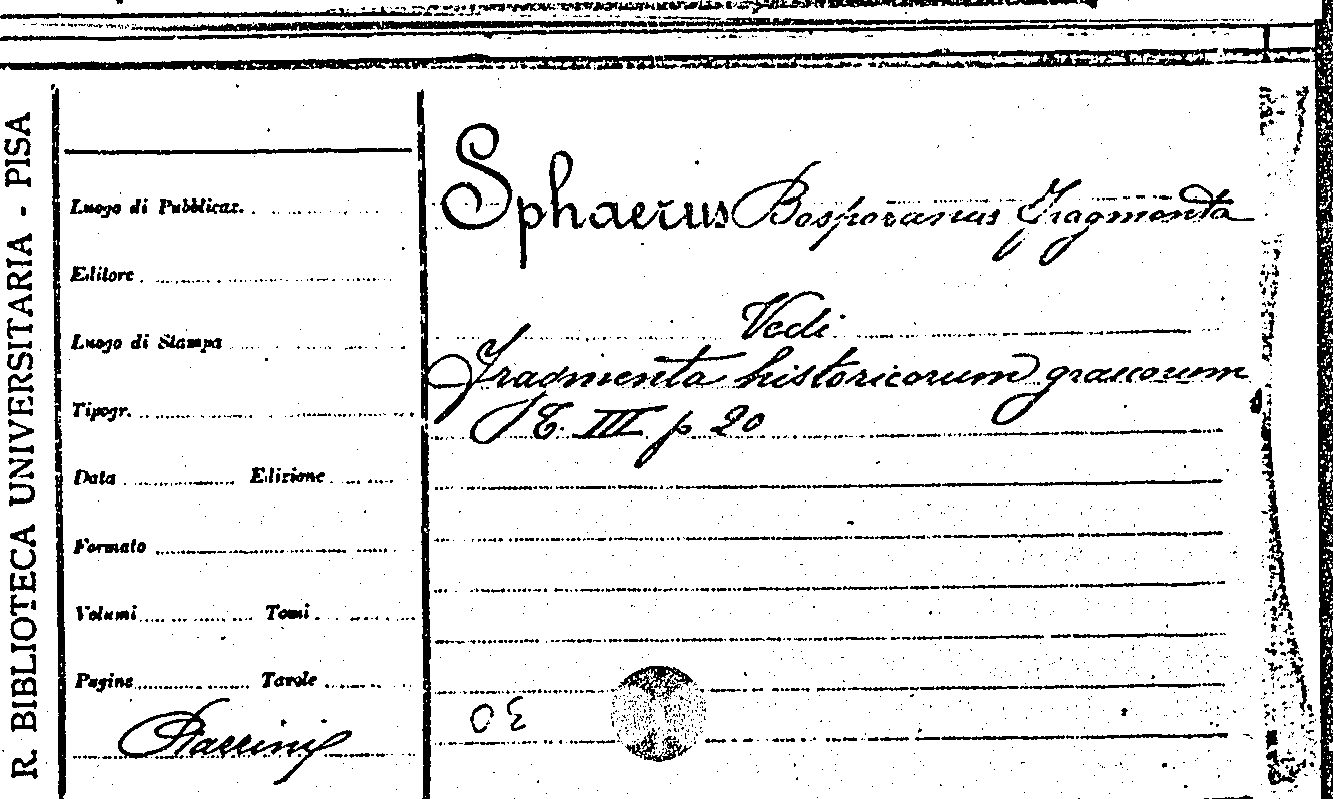 R. BIBLIOTECA UNIVERSITARIA - PISA
Luogo di Pubblicaz.
Editore
Luogo di Stampa
Tipogr.
Data Edizione
Formato
Volumi Tomi
Pagine Tavole
Sphaerus Bosporanus Fragmenta
Vedi
Fragmenta historicorum graecorum
T. III p 20